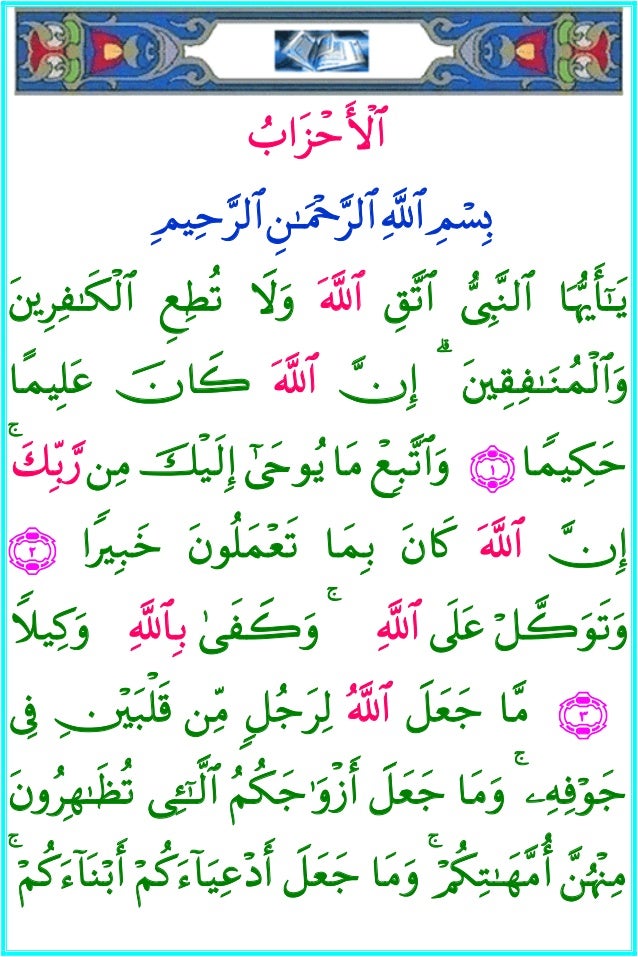 ٱلْأَحْزَابُ
بِسْمِ ٱللَّهِ ٱلرَّحْمَـٰنِ ٱلرَّحِيمِ
يَـٰٓأَيُّهَا ٱلنَّبِىُّ ٱتَّقِ ٱللَّهَ وَلَا تُطِعِ ٱلْكَـٰفِرِينَ
وَٱلْمُنَـٰفِقِينَ ۗ إِنَّ ٱللَّهَ كَانَ عَلِيمًا
حَكِيمًا ١ وَٱتَّبِعْ مَا يُوحَىٰٓ إِلَيْكَ مِن رَّبِّكَ ۚ
إِنَّ ٱللَّهَ كَانَ بِمَا تَعْمَلُونَ خَبِيرًا ٢
وَتَوَكَّلْ عَلَى ٱللَّهِ ۚ وَكَفَىٰ بِٱللَّهِ وَكِيلًا
٣ مَّا جَعَلَ ٱللَّهُ لِرَجُلٍ مِّن قَلْبَيْنِ فِى
جَوْفِهِۦ ۚ وَمَا جَعَلَ أَزْوَٰجَكُمُ ٱلَّـٰٓـِٔى تُظَـٰهِرُونَ
مِنْهُنَّ أُمَّهَـٰتِكُمْ ۚ وَمَا جَعَلَ أَدْعِيَآءَكُمْ أَبْنَآءَكُمْ ۚ